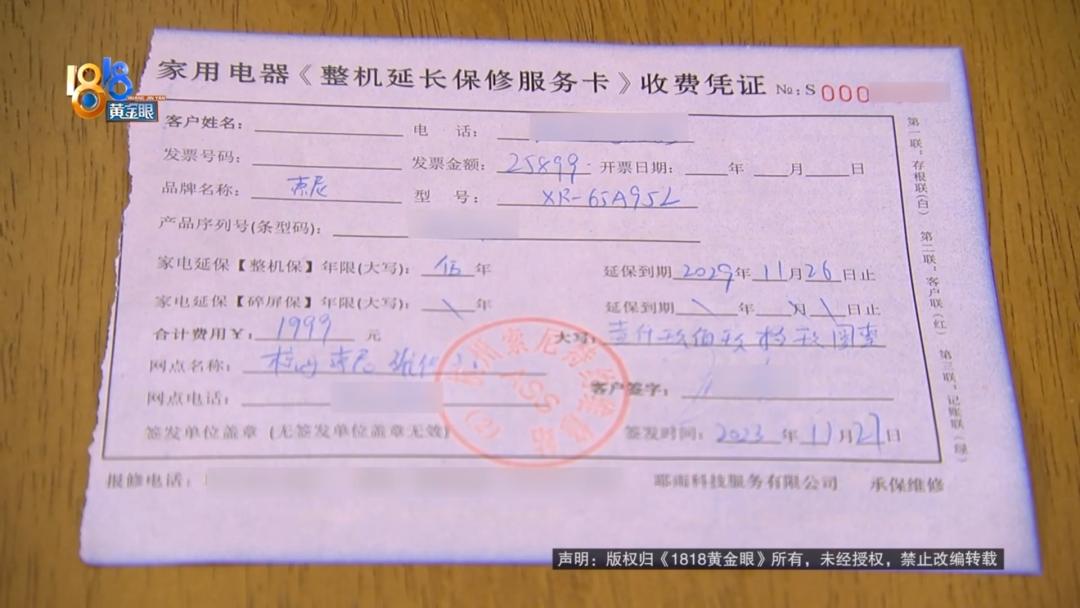 1818
黄金眼
家用电器《整机延长保修服务卡》收费凭证 №:S 000
客户姓名: 电 话:
发票号码: 发票金额: 25899 开票日期: 年 月 日
品牌名称: 索尼 型 号: XR-65A95L
产品序列号(条型码):
家电延保【整机保】年限(大写): 伍 年 延保到期 2029 年 11 月 26 日止
家电延保【碎屏保】年限(大写): \ 年 延保到期 \ 年 \ 月 \ 日止
合计费用¥: 1999 元 大写: 壹仟玖佰玖拾玖圆整
网点名称: 索尼
网点电话: 客户签字:
签发单位盖章 (无签发单位盖章无效) 签发时间: 2023 年 11 月 27 日
报修电话: 科技服务有限公司 承保维修
第一联:存根联(白) 第二联:客户联(红) 第三联:记账联(绿)
州索尼特约维修站
ASS
(2)
声明:版权归《1818黄金眼》所有,未经授权,禁止改编转载